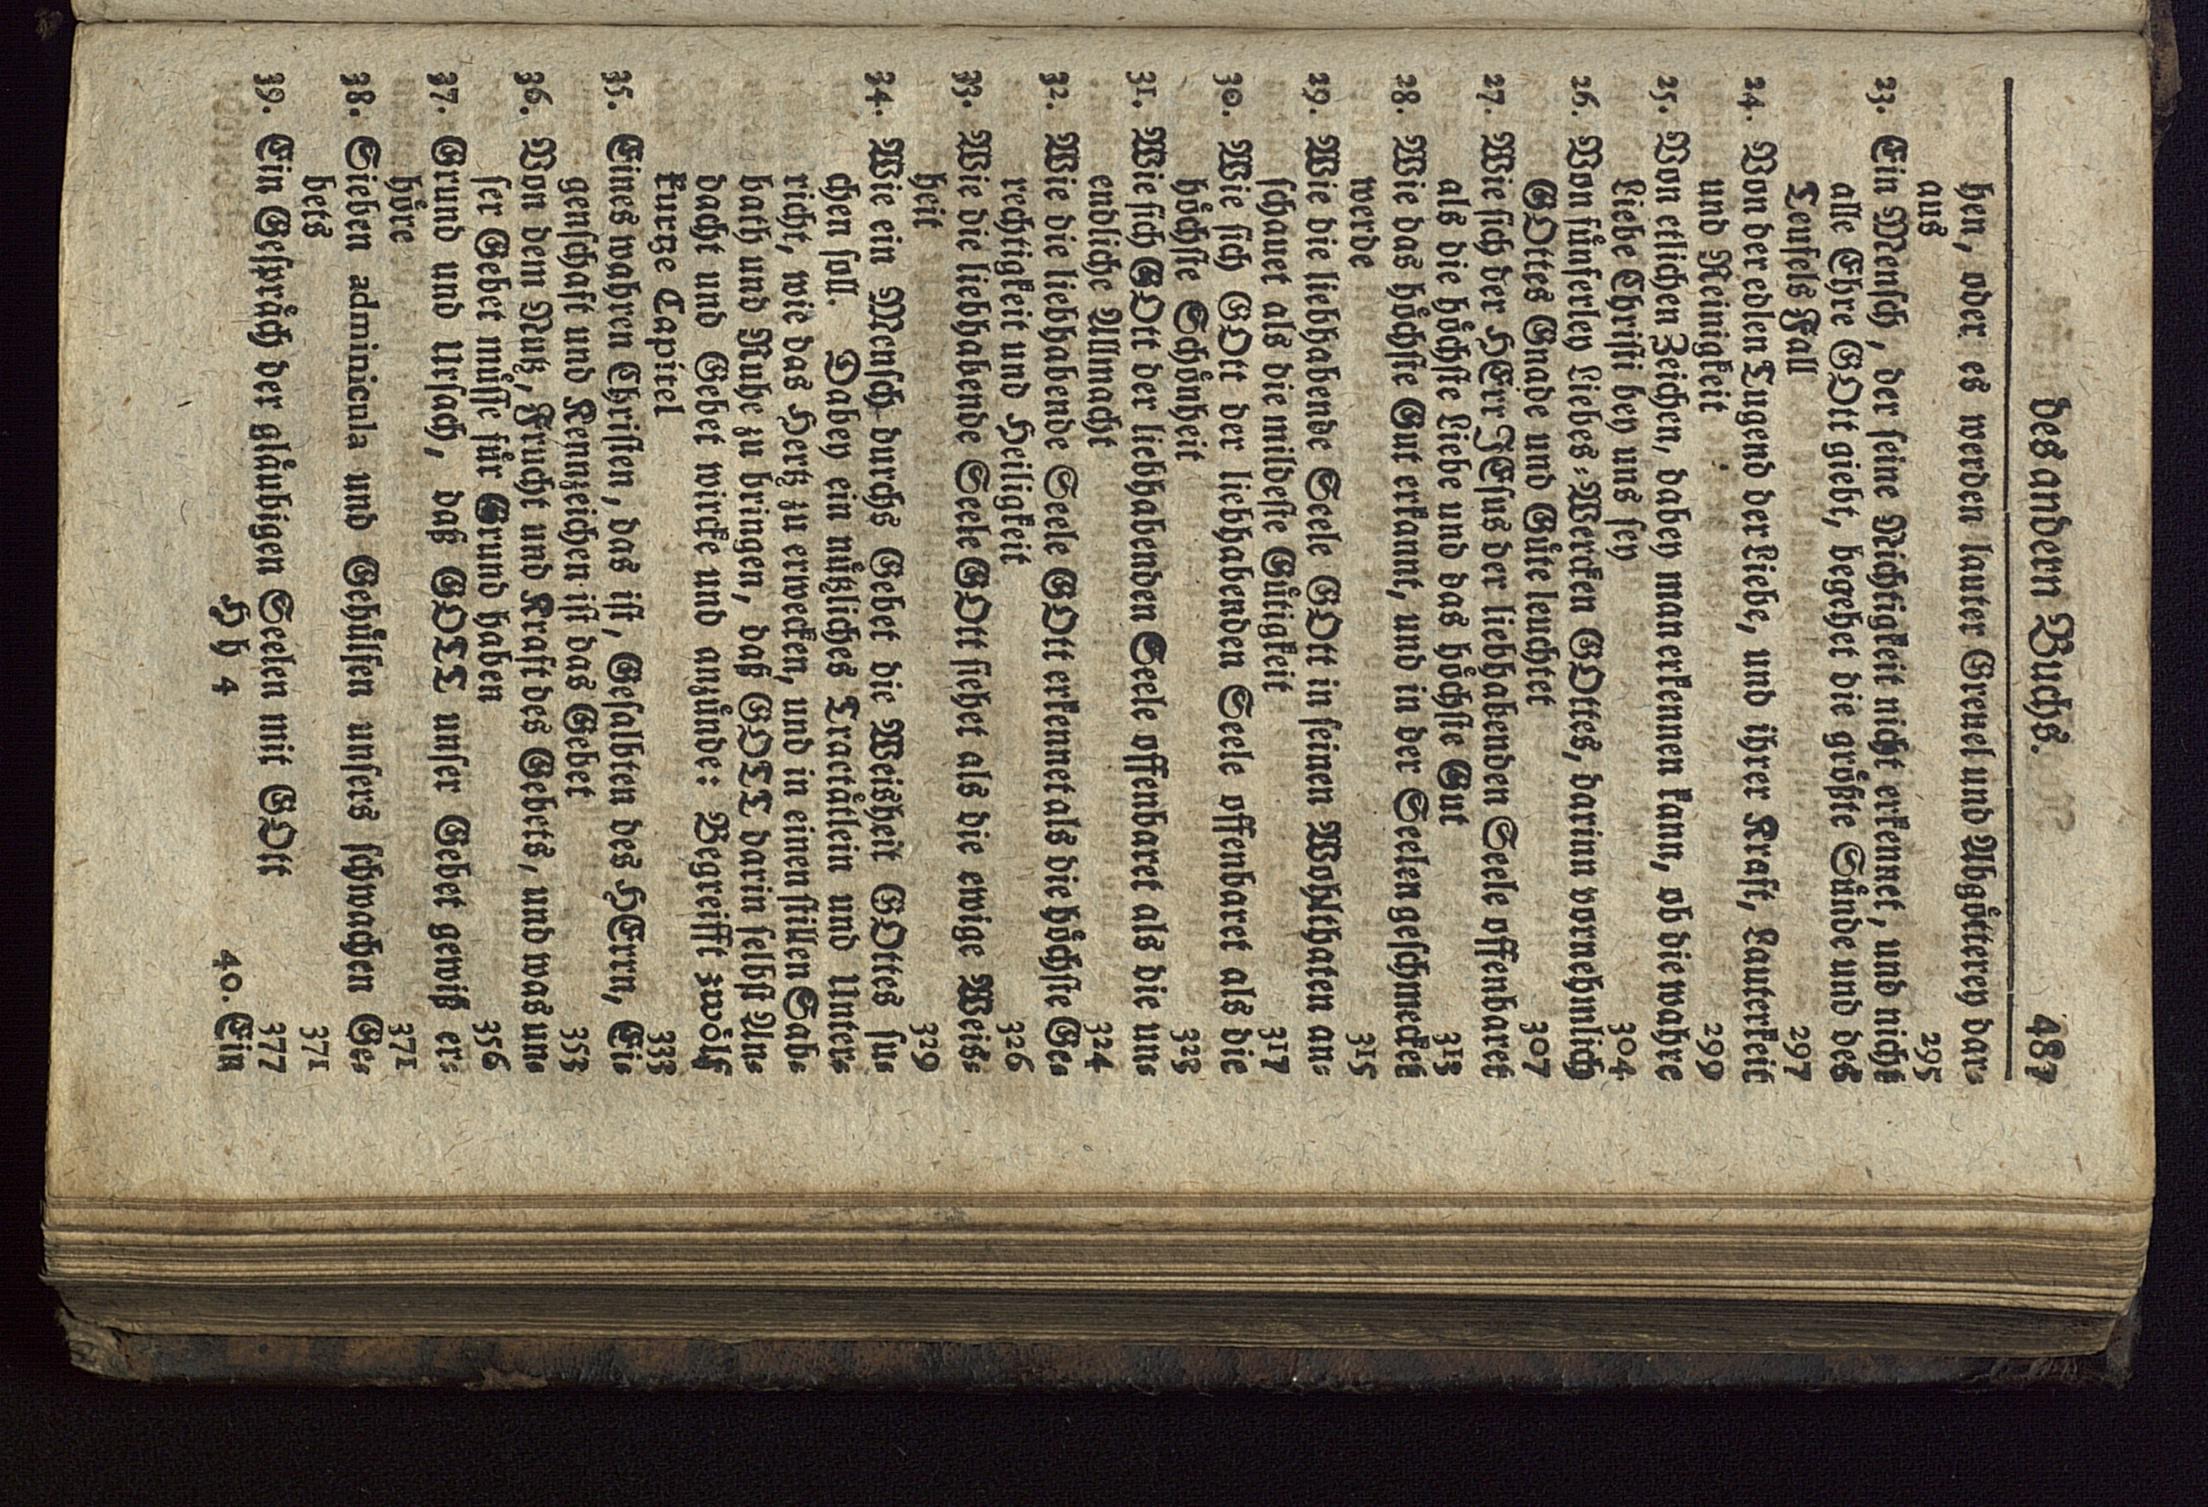 des andern Buchs. 487
hen, oder es werden lauter Greuel und Abgötterey dar-
aus 295
23. Ein Mensch, der seine Nichtigkeit nicht erkennet, und nicht
alle Ehre GOtt giebt, begehet die gröste Sünde und des
Teufels Fall 297
24. Von der edlen Tugend der Liebe, und ihrer Kraft, Lauterkeit
und Reinigkeit 299
25. Von etlichen Zeichen, dabey man erkennen kann, ob die wahre
Liebe Christi bey uns sey 304
26. Von fünferley Liebes-Wercken GOttes, darinn vornehmlich
GOttes Gnade und Güte leuchtet 307
27. Wie sich der HErr JEsus der liebhabenden Seele offenbaret
als die höchste Liebe und das höchste Gut 313
28. Wie das höchste Gut erkannt, und in der Seelen geschmecket
werde 315
29. Wie die liebhabende Seele GOtt in seinen Wohlthaten an-
schauet als die mildeste Gütigkeit 317
30. Wie sich GOtt der liebhabenden Seele offenbaret als die
höchste Schönheit 323
31. Wie sich GOtt der liebhabenden Seele offenbaret als die un-
endliche Allmacht 324
32. Wie die liebhabende Seele GOtt erkennet als die höchste Ge-
rechtigkeit und Heiligkeit 326
33. Wie die liebhabende Seele GOtt siehet als die ewige Weis-
heit 329
34. Wie ein Mensch durchs Gebet die Weisheit GOttes su-
chen soll. Dabey ein nützliches Tractätlein und Unter-
richt, wie das Hertz zu erwecken, und in einen stillen Sab-
bath und Ruhe zu bringen, daß GOTT darin selbst An-
dacht und Gebet wircke und anzünde: Begreifft zwölf
kurtze Capitel 333
35. Eines wahren Christen, das ist, Gesalbten des HErrn, Ei-
genschaft und Kennzeichen ist das Gebet 353
36. Von dem Nutz, Frucht und Kraft des Gebets, und was un-
ser Gebet müsse für Grund haben 356
37. Grund und Ursach, daß GOTT unser Gebet gewiß er-
höre 371
38. Sieben adminicula und Gehülfen unsers schwachen Ge-
bets 371
39. Ein Gespräch der gläubigen Seelen mit GOtt 377
Hh 4 40. Ein